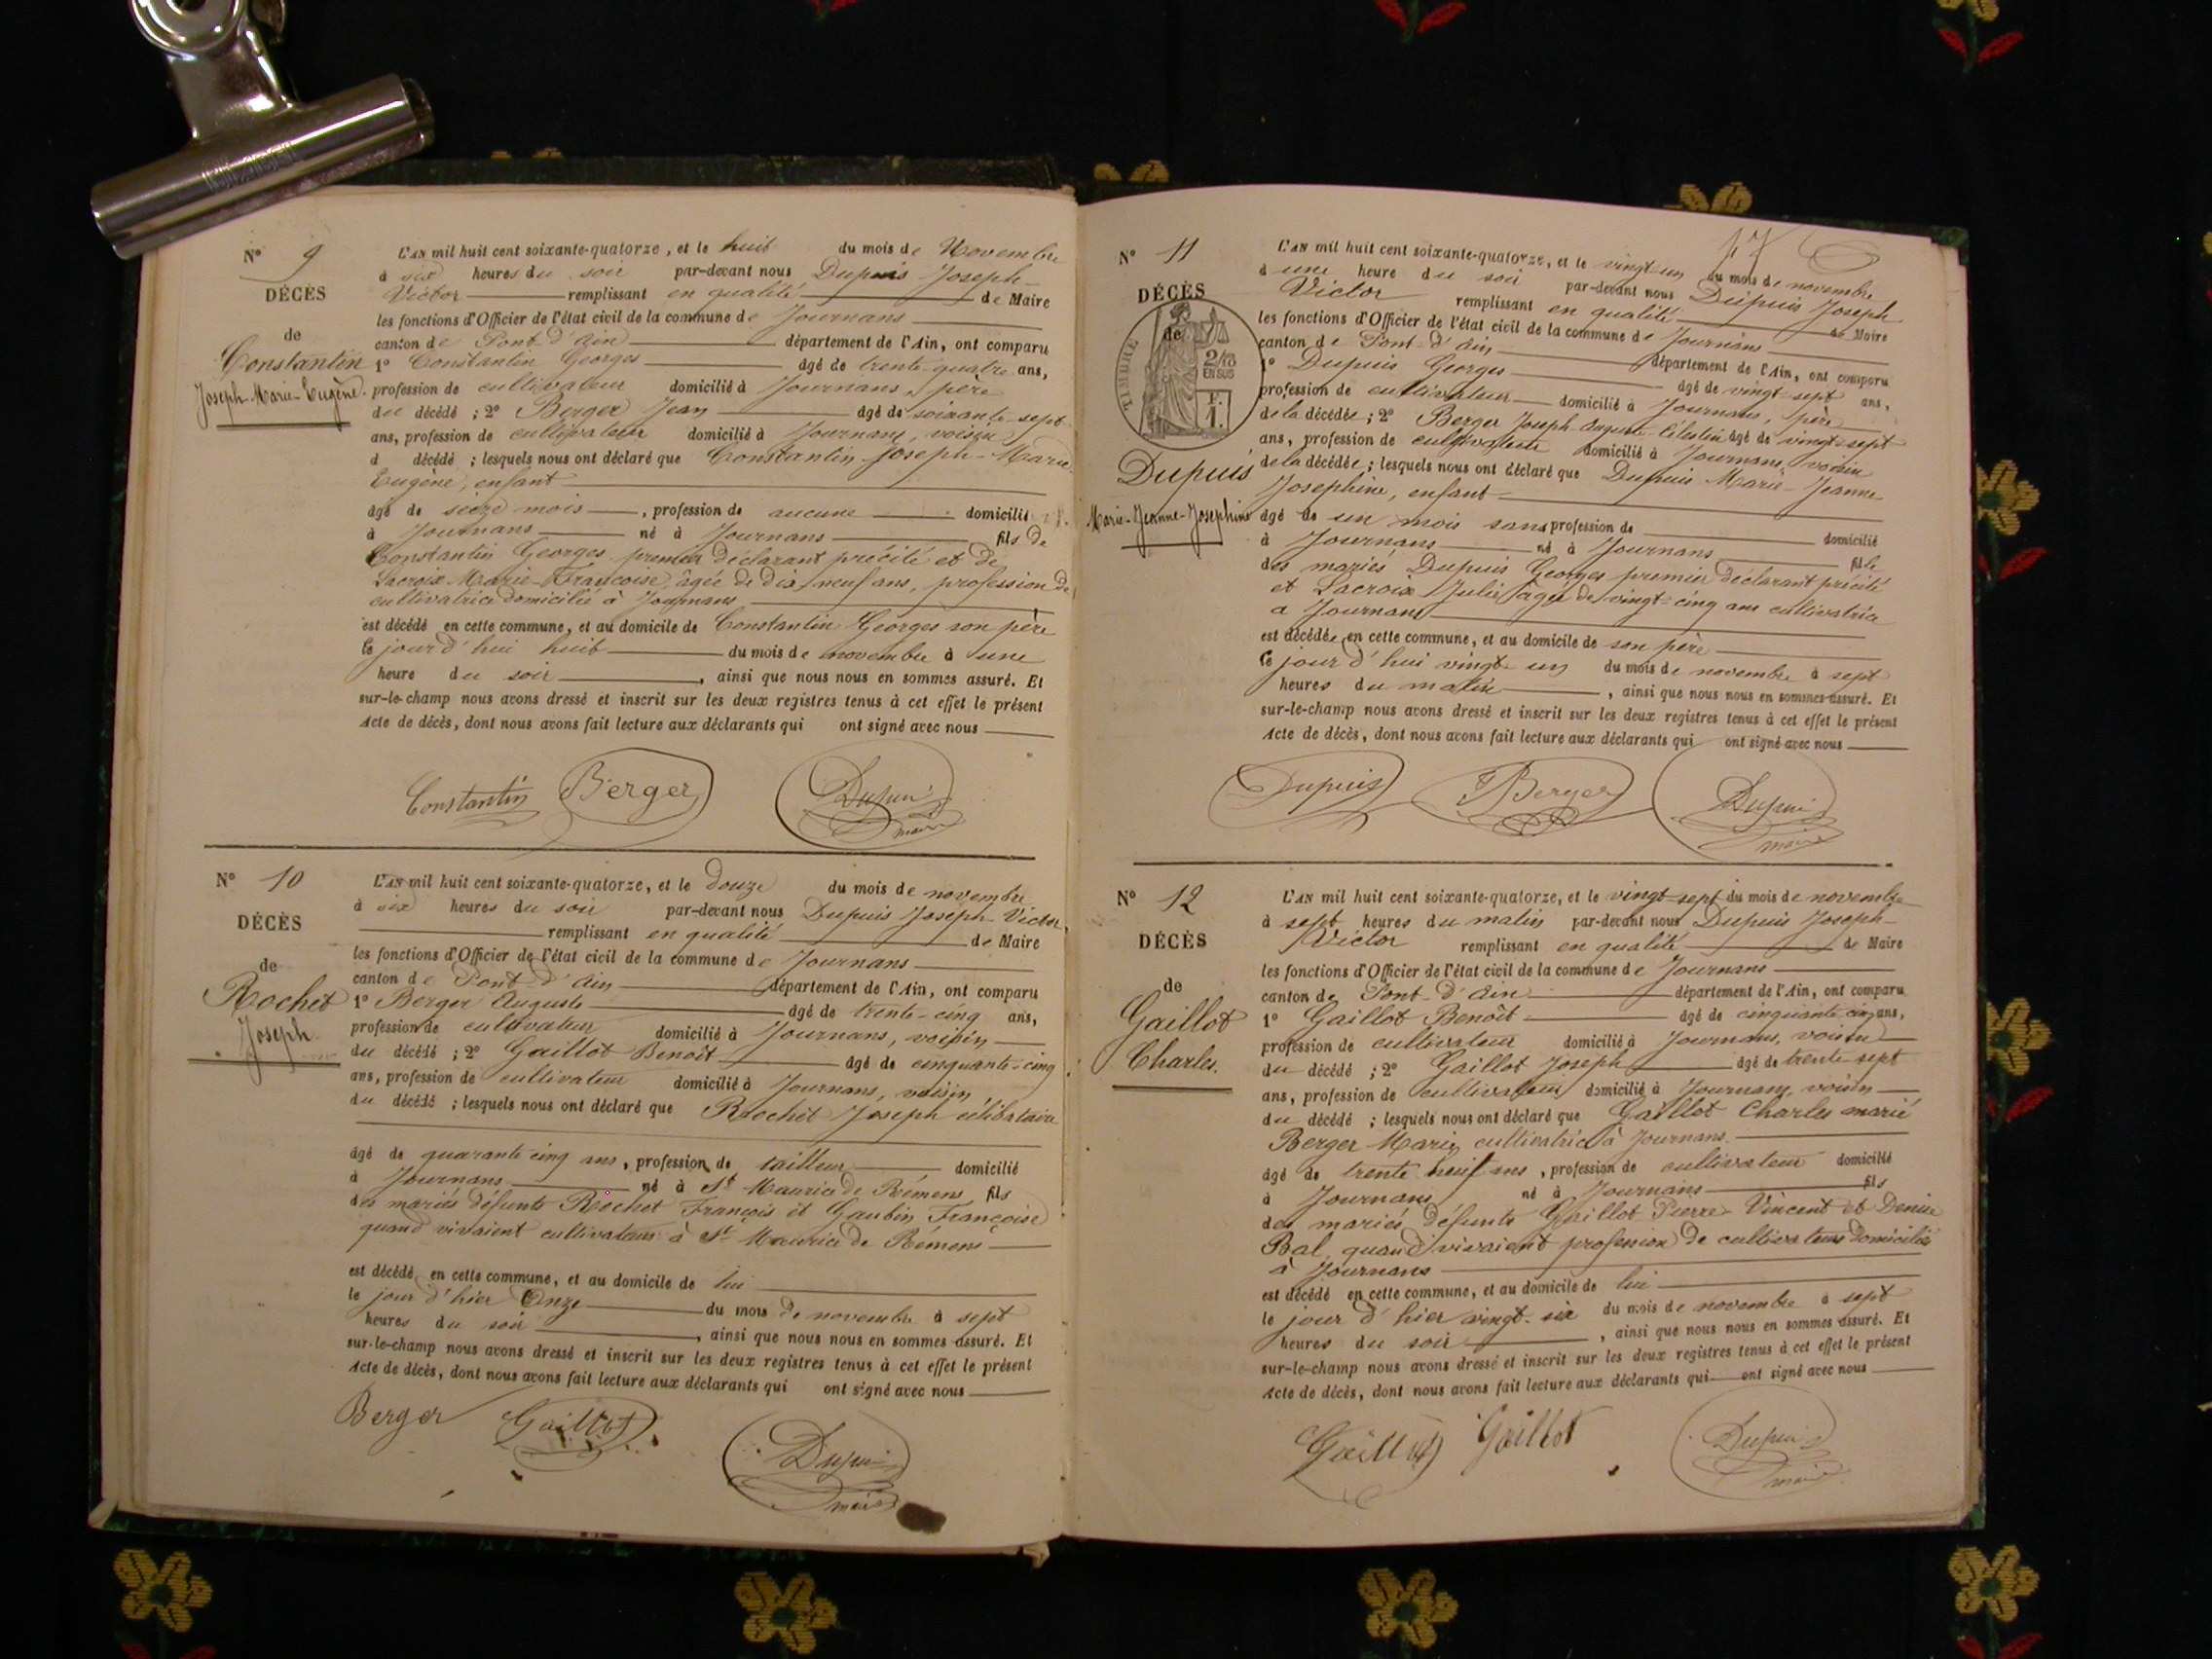 N° 9
DÉCÈS
de
Constantin
Joseph-Marie-Eugène.
L'AN mil huit cent soixante-quatorze, et le huit du mois de Novembre
à six heures du soir par-devant nous Dupuis Joseph-
Victor remplissant en qualité de Maire
les fonctions d'Officier de l'état civil de la commune de Journans
canton de Pont-d'Ain département de l'Ain, ont comparu
1° Constantin Georges âgé de trente-quatre ans,
profession de cultivateur domicilié à Journans, père
du décédé ; 2° Berger Jean âgé de soixante-sept
ans, profession de cultivateur domicilié à Journans, voisin
d décédé ; lesquels nous ont déclaré que Constantin Joseph-Marie
Eugène, enfant
âgé de seize mois, profession de aucune domicilié
à Journans né à Journans fils de
Constantin Georges premier déclarant précité et de
Lacroix Marie-Françoise âgée de dix neuf ans, profession de
cultivatrice domiciliée à Journans
est décédé en cette commune, et au domicile de Constantin Georges son père
le jour d'hui huit du mois de novembre à une
heure du soir, ainsi que nous nous en sommes assuré. Et
sur-le-champ nous avons dressé et inscrit sur les deux registres tenus à cet effet le présent
Acte de décès, dont nous avons fait lecture aux déclarants qui ont signé avec nous
Constantin Berger Dupuis
maire
N° 10
DÉCÈS
de
Rochet
Joseph
L'AN mil huit cent soixante-quatorze, et le douze du mois de novembre
à six heures du soir par-devant nous Dupuis Joseph-Victor,
remplissant en qualité de Maire
les fonctions d'Officier de l'état civil de la commune de Journans
canton de Pont-d'Ain département de l'Ain, ont comparu
1° Berger Auguste âgé de trente-cinq ans,
profession de cultivateur domicilié à Journans, voisin
du décédé ; 2° Gaillot Benoît âgé de cinquante-cinq
ans, profession de cultivateur domicilié à Journans, voisin
du décédé ; lesquels nous ont déclaré que Rochet Joseph célibataire
âgé de quarante cinq ans, profession de tailleur domicilié
à Journans né à St Maurice de Rémens fils
des mariés défunts Rochet François et Gaubin Françoise
quand vivaient cultivateurs à St Maurice de Rémens
est décédé en cette commune, et au domicile de lui
le jour d'hier Onze du mois de novembre à sept
heures du soir, ainsi que nous nous en sommes assuré. Et
sur-le-champ nous avons dressé et inscrit sur les deux registres tenus à cet effet le présent
Acte de décès, dont nous avons fait lecture aux déclarants qui ont signé avec nous
Berger Gaillot Dupuis
maire
17
N° 11
DÉCÈS
de
TIMBRE
2/10
EN SUS
F.
1.
Dupuis
Marie-Jeanne-Joséphine
L'AN mil huit cent soixante-quatorze, et le vingt-un du mois de novembre
à une heure du soir par-devant nous Dupuis Joseph
Victor remplissant en qualité de Maire
les fonctions d'Officier de l'état civil de la commune de Journans
canton de Pont-d'Ain département de l'Ain, ont comparu
1° Dupuis Georges âgé de vingt-sept ans,
profession de cultivateur domicilié à Journans, père
de la décédée ; 2° Berger Joseph Auguste Célestin âgé de vingt-sept
ans, profession de cultivateur domicilié à Journans, voisin
de la décédée ; lesquels nous ont déclaré que Dupuis Marie-Jeanne-
Josephine, enfant
âgé de un mois sans profession de domicilié
à Journans né à Journans fille
des mariés Dupuis Georges premier déclarant précité
et Lacroix Julie âgée de vingt-cinq ans cultivatrice
à Journans
est décédée en cette commune, et au domicile de son père
le jour d'hui vingt un du mois de novembre à sept
heures du matin, ainsi que nous nous en sommes assuré. Et
sur-le-champ nous avons dressé et inscrit sur les deux registres tenus à cet effet le présent
Acte de décès, dont nous avons fait lecture aux déclarants qui ont signé avec nous
Dupuis Berger Dupuis
maire
N° 12
DÉCÈS
de
Gaillot
Charles.
L'AN mil huit cent soixante-quatorze, et le vingt-sept du mois de novembre
à sept heures du matin par-devant nous Dupuis Joseph-
Victor remplissant en qualité de Maire
les fonctions d'Officier de l'état civil de la commune de Journans
canton de Pont-d'Ain département de l'Ain, ont comparu
1° Gaillot Benoît âgé de cinquante cinq ans,
profession de cultivateur domicilié à Journans, voisin
du décédé ; 2° Gaillot Joseph âgé de trente-sept
ans, profession de cultivateur domicilié à Journans, voisin
du décédé ; lesquels nous ont déclaré que Gaillot Charles marié
Berger Marie cultivatrice à Journans.
âgé de trente neuf ans, profession de cultivateur domicilié
à Journans né à Journans fils
des mariés défunts Gaillot Pierre-Vincent et Denise
Bal, quand vivaient profession de cultivateurs domiciliés
à Journans
est décédé en cette commune, et au domicile de lui
le jour d'hier vingt-six du mois de novembre à sept
heures du soir, ainsi que nous nous en sommes assuré. Et
sur-le-champ nous avons dressé et inscrit sur les deux registres tenus à cet effet le présent
Acte de décès, dont nous avons fait lecture aux déclarants qui ont signé avec nous
Gaillot Gaillot Dupuis
maire